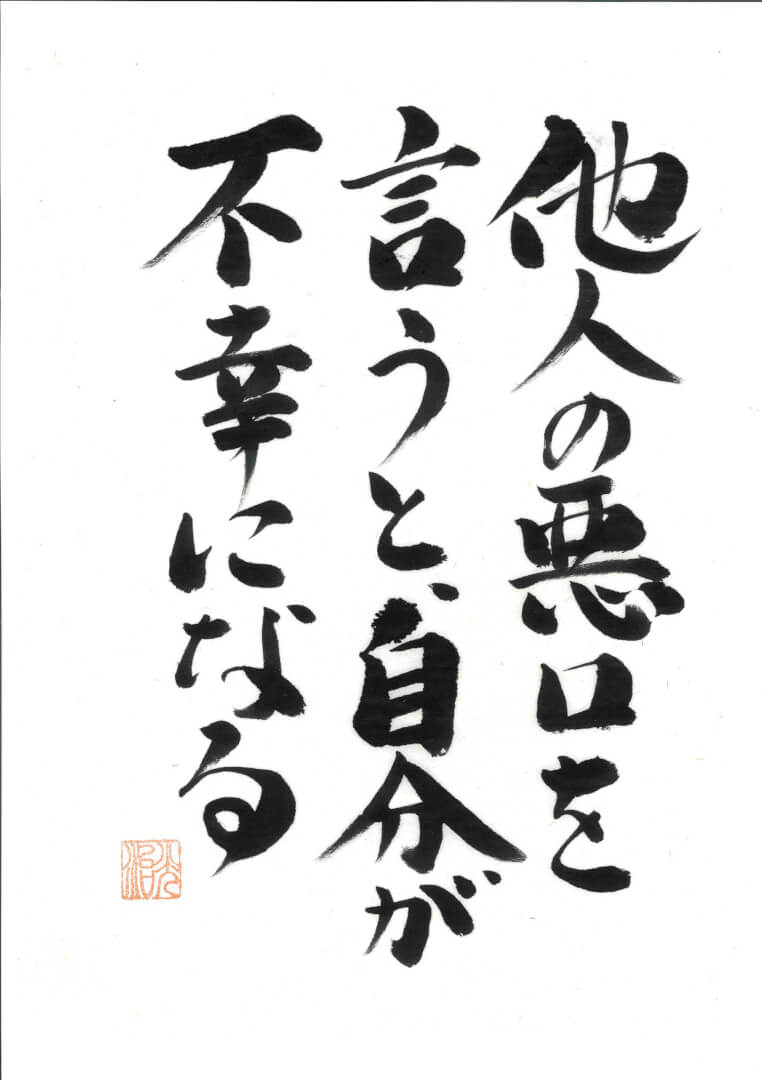 他人の悪口を
言うと、自分が
不幸になる